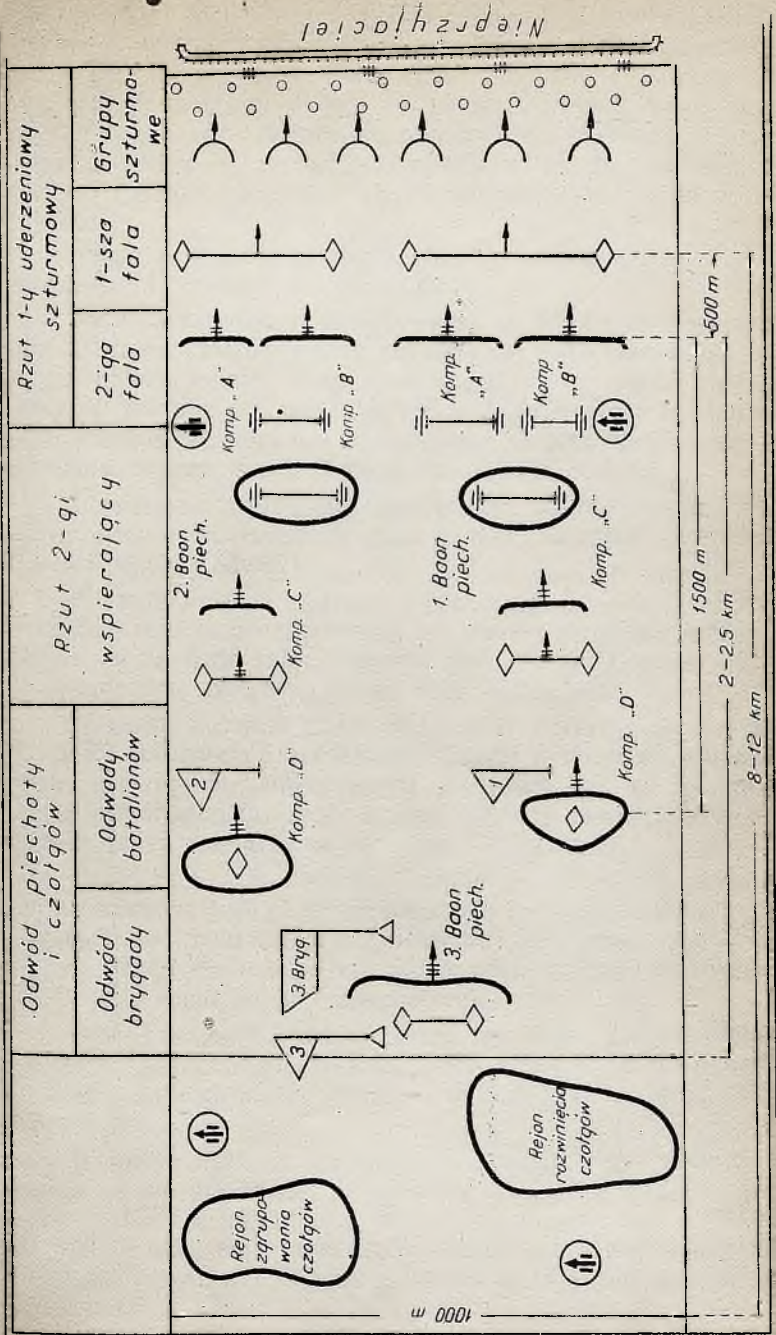 Nieprzyjaciel
Rzut 1-y uderzeniowy
szturmowy
Grupy
szturmo-
we
1-sza
fala
2-ga
fala
Rzut 2-gi
wspierający
Odwód piechoty
i czołgów
Odwody
batalionów
Odwód
brygady
Komp. „A"
Komp. „B"
Komp. „A"
Komp. „B"
2. Baon
piech.
Komp. „C"
1. Baon
piech.
Komp. „C"
2
Komp. „D"
1
Komp. „D"
3. Bryg.
3. Baon
piech.
3
Rejon
zgrupo-
wania
czołgów
Rejon
rozwinięcia
czołgów
500 m
1500 m
2-2.5 km
8-12 km
1000 m